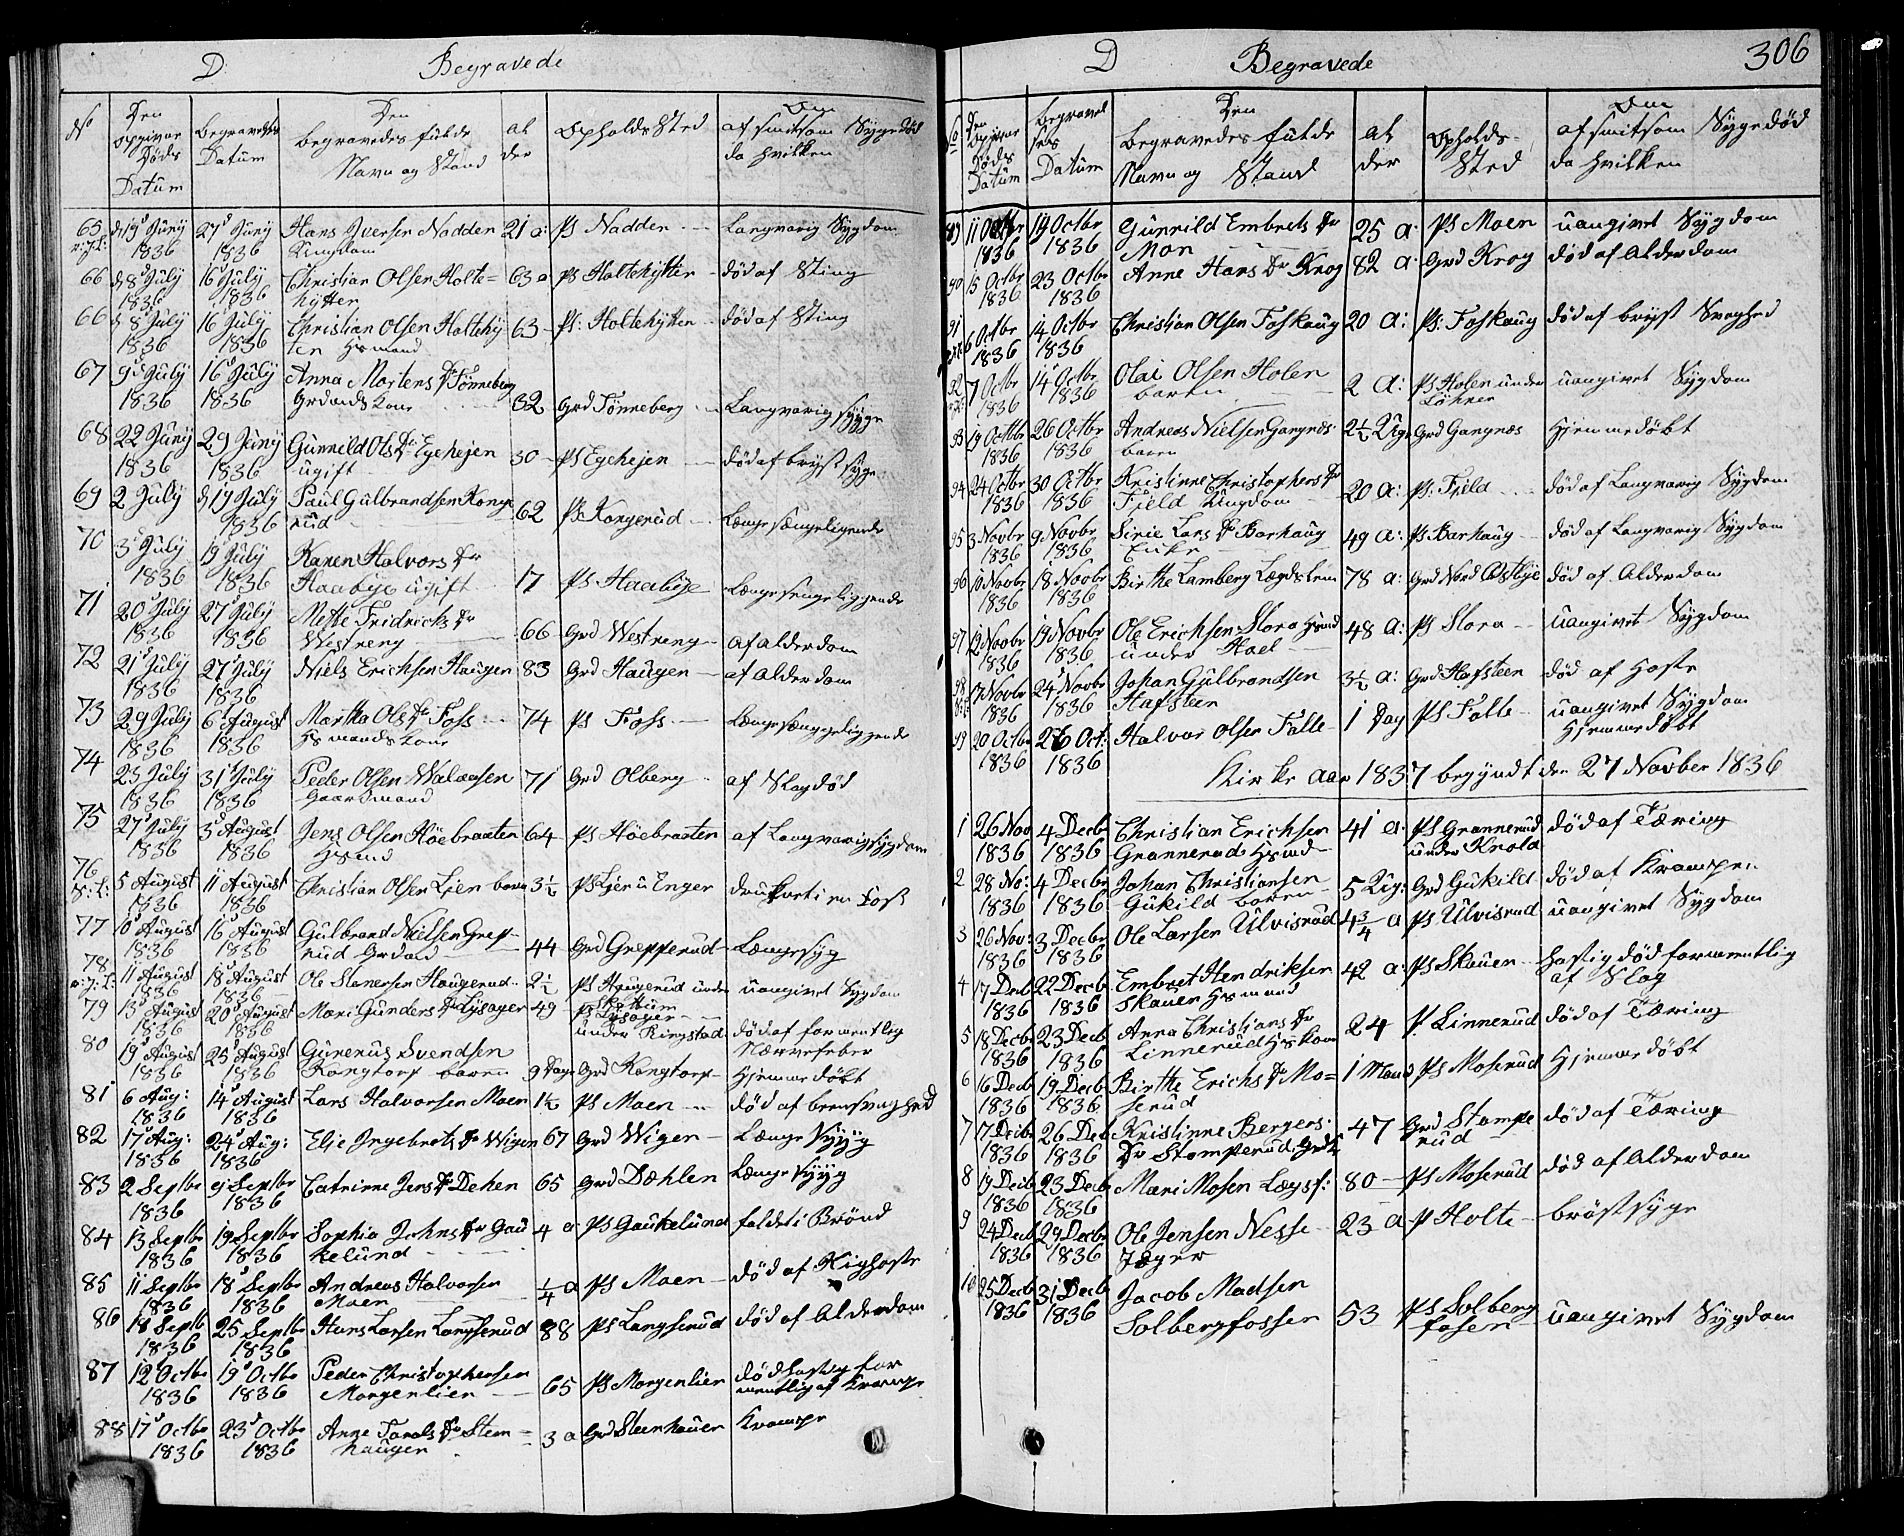 D. Begravede
No
Den opgivne Døds Datum
Begravelses Datum
Den begravedes fulde Navn og Stand
al der
Opholds Sted
Om af smitsom Sygedød da hvilken
65 d 19d Juny 1836 27d Juny 1836 Hans Iversen Nadden Ungdom 21 a: Ps Nadden Langvarig Sygdom
66 d 8d July 1836 16d July 1836 Christian Olsen Holte= hytten 63 a Ps Holtehytten død af Sting
66 d 8d July 1836 16 July 1836 Christian Olsen Holtehyt ten Hsmand 63 Ps: Holtehytten død af Sting
67 9d July 1836 16d July 1836 Anna Mortens Dr Tønneberg Grdmds Kone 32 Grd Tønneberg Langvarig Syyge
68 22 Juny 1836 29 Juny 1836 Gunnild Ols Dr Egehejen ugift 30 Ps Egehejen død af bryst syge
69 2 July d 19 July 1836 Paul Gulbrandsen Konge rud 62 Ps Kongerud Længe sængeligende
70 3d July 1836 19 July 1836 Karen Halvors Dr Haabye ugift 17 Ps Haabye Længe sengeliggende
71 20d July 1836 27d July 1836 Mette Fridrichs Dr Westreng 66 Grd Westreng af Alderdom
72 21d July 1836 27d July 1836 Niels Erichsen Haugen 83 Grd Haugen af Alderdom
73 29 July 1836 6t August 1836 Martha Ols Dr Foss Hsmands Kone 74 Ps Foss Længe sænggeliggende
74 23 July 1836 31t July 1836 Peder Olsen Gaardmand 71 Grd Olberg af Slag død
75 27d July 1836 3d August 1836 Jens Olsen Høebraaten Hsmnd 64 Ps Høebraaten af Langvarig Sygdom
76 5 August 1836 11 August 1836 Christian Olsen Lien barn 3½ Ps Lien u Enger i en Foss
77 10d August 1836 16d August 1836 Gulbrand Nielsen Grep rud 44 Grd Grepperud Længe syg
78 11 August 1836 18d August 1836 Ole Stenersen Haugerud 2½ Ps Haugerud under uangivet Sygdom
79 13d August 1836 20d August 1836 Mari Gunders Dr Lysager 49 Ps Lysager under Ringstad død af formentlig Nærvefeber
80 19d August 1836 25d August 1836 Gunerus Svendsen Rongtorp baren 9 Dage Grd Rongtorp Hjemme døbt
81 6 Aug: 1836 14d August 1836 Lars Halvorsen Moen 1½ Ps Moen død af brøstsvaghed
82 17d Aug: 1836 24d Aug: 1836 Elie Ingebrets Dr Wigen 67 Grd Wigen Længe Syyg
83 2 Septbr 1836 9d Septbr 1836 Catrinne Jens Dr Dehen 65 Grd Dæhlen Længe Syyg
84 13 Septbr 1836 19d Septbr 1836 Sophia Johns Dr Gau kelund 4 a Ps Gaukelund faldet i Brønd
85 11 Septbr 1836 18d Septbr 1836 Andreas Halvorsen Moen ¼ a Ps Moen død af Kighoste
86 18 Septbr 1836 25 Septbr 1836 Hans Larsen Langserud 88 Ps Langserud død af Alderdom
87 12d Octbr 1836 19d Octbr 1836 Peder Christophersen Morgenlien 65 Ps Morgenlien død hastig for mentlig af Krampe
88 17d Octbr 1836 23d Octbr 1836 Anne Tarals Dr Steen= haugen 3 a Grd Steenhauen Krampe
D Begravede 306
No
Den opgivne Døds Datum
Begravelsens Datum
Den begravedes fulde Navn og Stand
al der
Opholds- Sted
Om af smitsom Sygedød da hvilken
89 11 Octbr 1836 19 Octbr 1836 Gunnild Embrets Dr Moen 25 a: Ps Moen uangivet Sygdom
90 15 Octbr 1836 23 Octbr 1836 Anne Hans Dr Krog 82 a: Grd Krog død af Alderdom
91 6 Octbr 1836 14 Octbr 1836 Christian Olsen Foskaug 20 A: Ps: Foskaug død af bryst Svaghed
92 7 Octbr 1836 14 Octbr 1836 Olai Olsen Holen baren 2 A: Ps Holen under Løhren uangivet Sygdom
93 19 Octbr 1836 26 Octbr 1836 Andreas Nielsen Gangnæs baren 2½ Uge Grd Gangnæs Hjemmedøbt
94 24 Octbr 1836 30 Octbr 1836 Kristinne Christophers Dr Field Ungdom 20 A: Ps: Field død af Langvarig Sygdom
95 3 Novbr 1836 9 Novbr 1836 Sirie Lars Dr Barhaug Enke 49 A: Ps Barhaug død af Langvarig Sygdom
96 10 Novbr 1836 18 Novbr 1836 Birthe Lamberg Lægdslem 78 a: Grd Nord Østbye død af Alderdom
97 12 Novbr 1836 19 Novbr 1836 Ole Erichsen Slora Hsmd under Hoel 48 A: Ps Slora uangivet Sygdom
98 17 Novbr 1836 24 Novbr 1836 Johan Gulbrandsen Hafsteen 3½ a: Grd Hafsteen død af Hoste
99 20 Octbr 1836 26 Oct: 1836 Halvor Olsen Falle 1 Dag Ps Falle uangivet Sygdom Hjemmedøbt
Kirke Aar 1837 begyndt den 27 Novber 1836
1 26 Nov 1836 4 Decb 1836 Christian Erichsen Grannerud Hsmd 41 a: Ps Grannerud under Krold død af Tæring
2 28 No: 1836 4 Decbr 1836 Johan Christiansen Gukild baren 5 Ug: Grd Gukild død af Krampen
3 26 Nov: 1836 3 Decbr 1836 Ole Larsen Ulvisrud 4¾ a Ps Ulvisrud uangivet Sygdom
4 17 Decb 1836 22 Decb 1836 Embret Hendriksen Skauen Hsmand 42 a: Ps Skauen hastig død formentlig af Slag
5 18 Decbr 1836 23 Decb 1836 Anna Christians Dr Linnerud Hs kone 24 P Linnerud død af Tæring
6 16 Decb 1836 19 Decb 1836 Birthe Erichs Dr Mo= serud 1 Maand Ps Moserud Hjemmedøbt
7 17 Decbr 1836 26 Decb 1836 Kristinne Bergers: Dr Stomperud 47 Grd Stompe rud død af Tæring
8 19 Decb 1836 23 Decb 1836 Mari Mosen Lægsf: 80 Ps Moserud død af Alderdom
9 24 Decb 1836 29 Decbr 1836 Ole Jensen Nesse Jæger 23 A P Holte brøstsyge
10 25 Decb 1836 31 Decb 1836 Jacob Madsen Solbergfossen 53 Ps Solberg fosen uangivet Sygdom